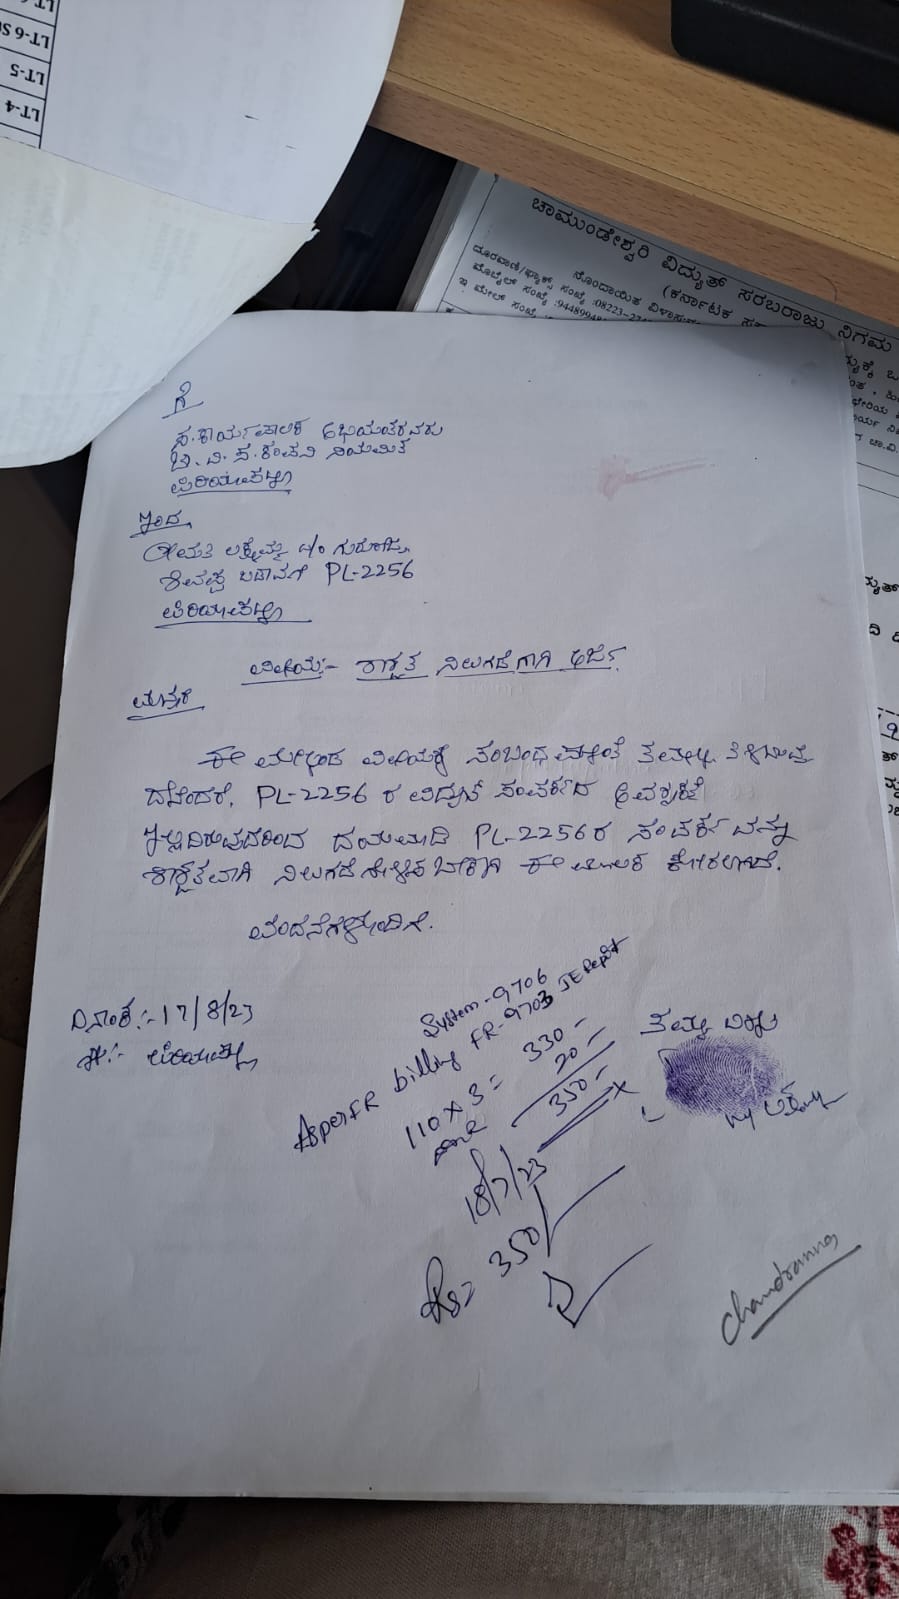 LT-6 S
LT-5
LT-4
ಚಾಮುಂಡೇಶ್ವರಿ ವಿದ್ಯುತ್ ಸರಬರಾಜು ನಿಗಮ
(ಕರ್ನಾಟಕ
ನೋಂದಾಯಿತ ವಿಳಾಸ
ದೂರವಾಣಿ/ಫ್ಯಾಕ್ಸ್ ಸಂಖ್ಯೆ :08223-27
ಮೊಬೈಲ್ ಸಂಖ್ಯೆ :9448994
ಇ ಮೇಲ್ ಸಂಖ್ಯೆ
ಗೆ
ಸ.ಕಾರ್ಯಪಾಲಕ
ಚಾ.ವಿ.ಸ.ಕಂಪನಿ ನಿಯಮಿತ
ಪಿರಿಯಾಪಟ್ಟಣ
ಇಂದ
ಶ್ರೀಮತಿ ಲಕ್ಷ್ಮಮ್ಮ
ಬಡಾವಣೆ PL-2256
ಪಿರಿಯಾಪಟ್ಟಣ
ವಿಷಯ:- ಶಾಶ್ವತ ನಿಲುಗಡೆಗಾಗಿ ಅರ್ಜಿ.
ಮಾನ್ಯರೆ
ಈ ಮೇಲ್ಕಂಡ ವಿಷಯಕ್ಕೆ ಸಂಬಂಧಪಟ್ಟಂತೆ ತಮ್ಮಲ್ಲಿ
ಏನೆಂದರೆ, PL-2256 ರ ವಿದ್ಯುತ್ ಸಂಪರ್ಕದ ಅವಶ್ಯಕತೆ
ಇಲ್ಲದಿರುವುದರಿಂದ ದಯಮಾಡಿ PL-2256ರ ಸಂಪರ್ಕವನ್ನು
ಶಾಶ್ವತವಾಗಿ ಈ ಮೂಲಕ ಕೋರಲಾಗಿದೆ.
ವಂದನೆಗಳೊಂದಿಗೆ.
ದಿನಾಂಕ:-17/8/23
ಸ್ಥಳ:- ಪಿರಿಯಾಪಟ್ಟಣ
System-9706
As per FR billing FR-9703 JE Report
110 x 3 = 330-
20-
350-
18/7/23
Rs= 350/
ತಮ್ಮ ವಿಶ್ವಾಸಿ
Chandranna